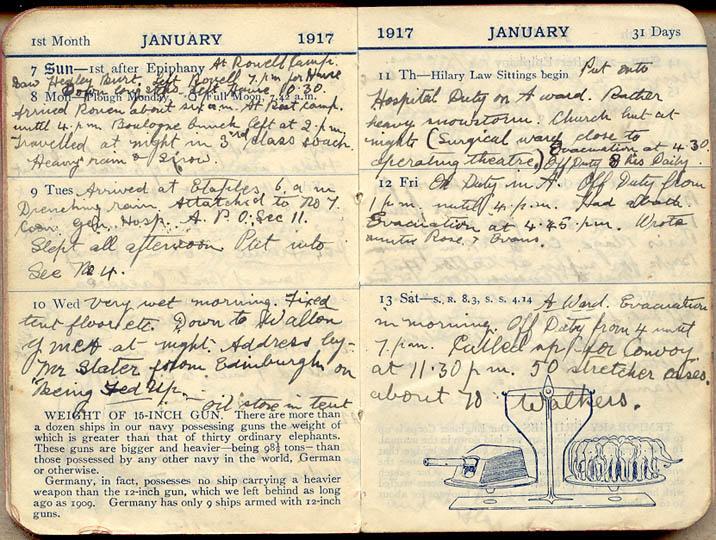 1st Month JANUARY 1917
7 Sun—1st after Epiphany At Rowell Camp.
Saw Hegley Burt. Left Rowell 7.pm for Havre
Down Left Havre 10.30.
8 Mon—Plough Monday. O Full Moon, 7.42 a.m.
Arrived Rouen about six a.m. At Rest Camp.
until 4.p.m. Boulogne bunch left at 2 p.m.
Travelled at night in 3rd class coach.
Heavy rain & snow.
9 Tues Arrived at Etaples 6. a m
Drenching rain. Attatched to No 7.
Can. Gen. Hosp. A. P. O. Sec 11.
Slept all afternoon Put into
Sec No 4.
10 Wed Very wet morning. Fixed
tent floor etc. Down to Walton
Y M C A at night. Address by-
Mr Slater from Edinburgh on
"Being Fed Up"
oil stove in tent
WEIGHT OF 15-INCH GUN. There are more than
a dozen ships in our navy possessing guns the weight of
which is greater than that of thirty ordinary elephants.
These guns are bigger and heavier—being 98½ tons—than
those possessed by any other navy in the world, German
or otherwise.
Germany, in fact, possesses no ship carrying a heavier
weapon than the 12-inch gun, which we left behind as long
ago as 1909. Germany has only 9 ships armed with 12-inch
guns.
1917 JANUARY 31 Days
11 Th—Hilary Law Sittings begin Put onto
Hospital Duty on A ward. Rather
heavy snowstorm. Church hut at
nights (Surgical ward close to
operating theatre.) Evacuation at 4.30.
Off Duty 3 Hrs Daily.
12 Fri On Duty in A. Off Duty from
1 p.m. until 4.p.m. Had
Evacuation at 4.45.p.m. Wrote
auntie Rose, & Evans.
13 Sat—S. R. 8.3, S. S. 4.14 A Ward. Evacuation
in morning. Off Duty from 4 until
7.p.m. Called up for Convoy
at 11.30 p m. 50 stretcher cases.
about 70 Walkers.